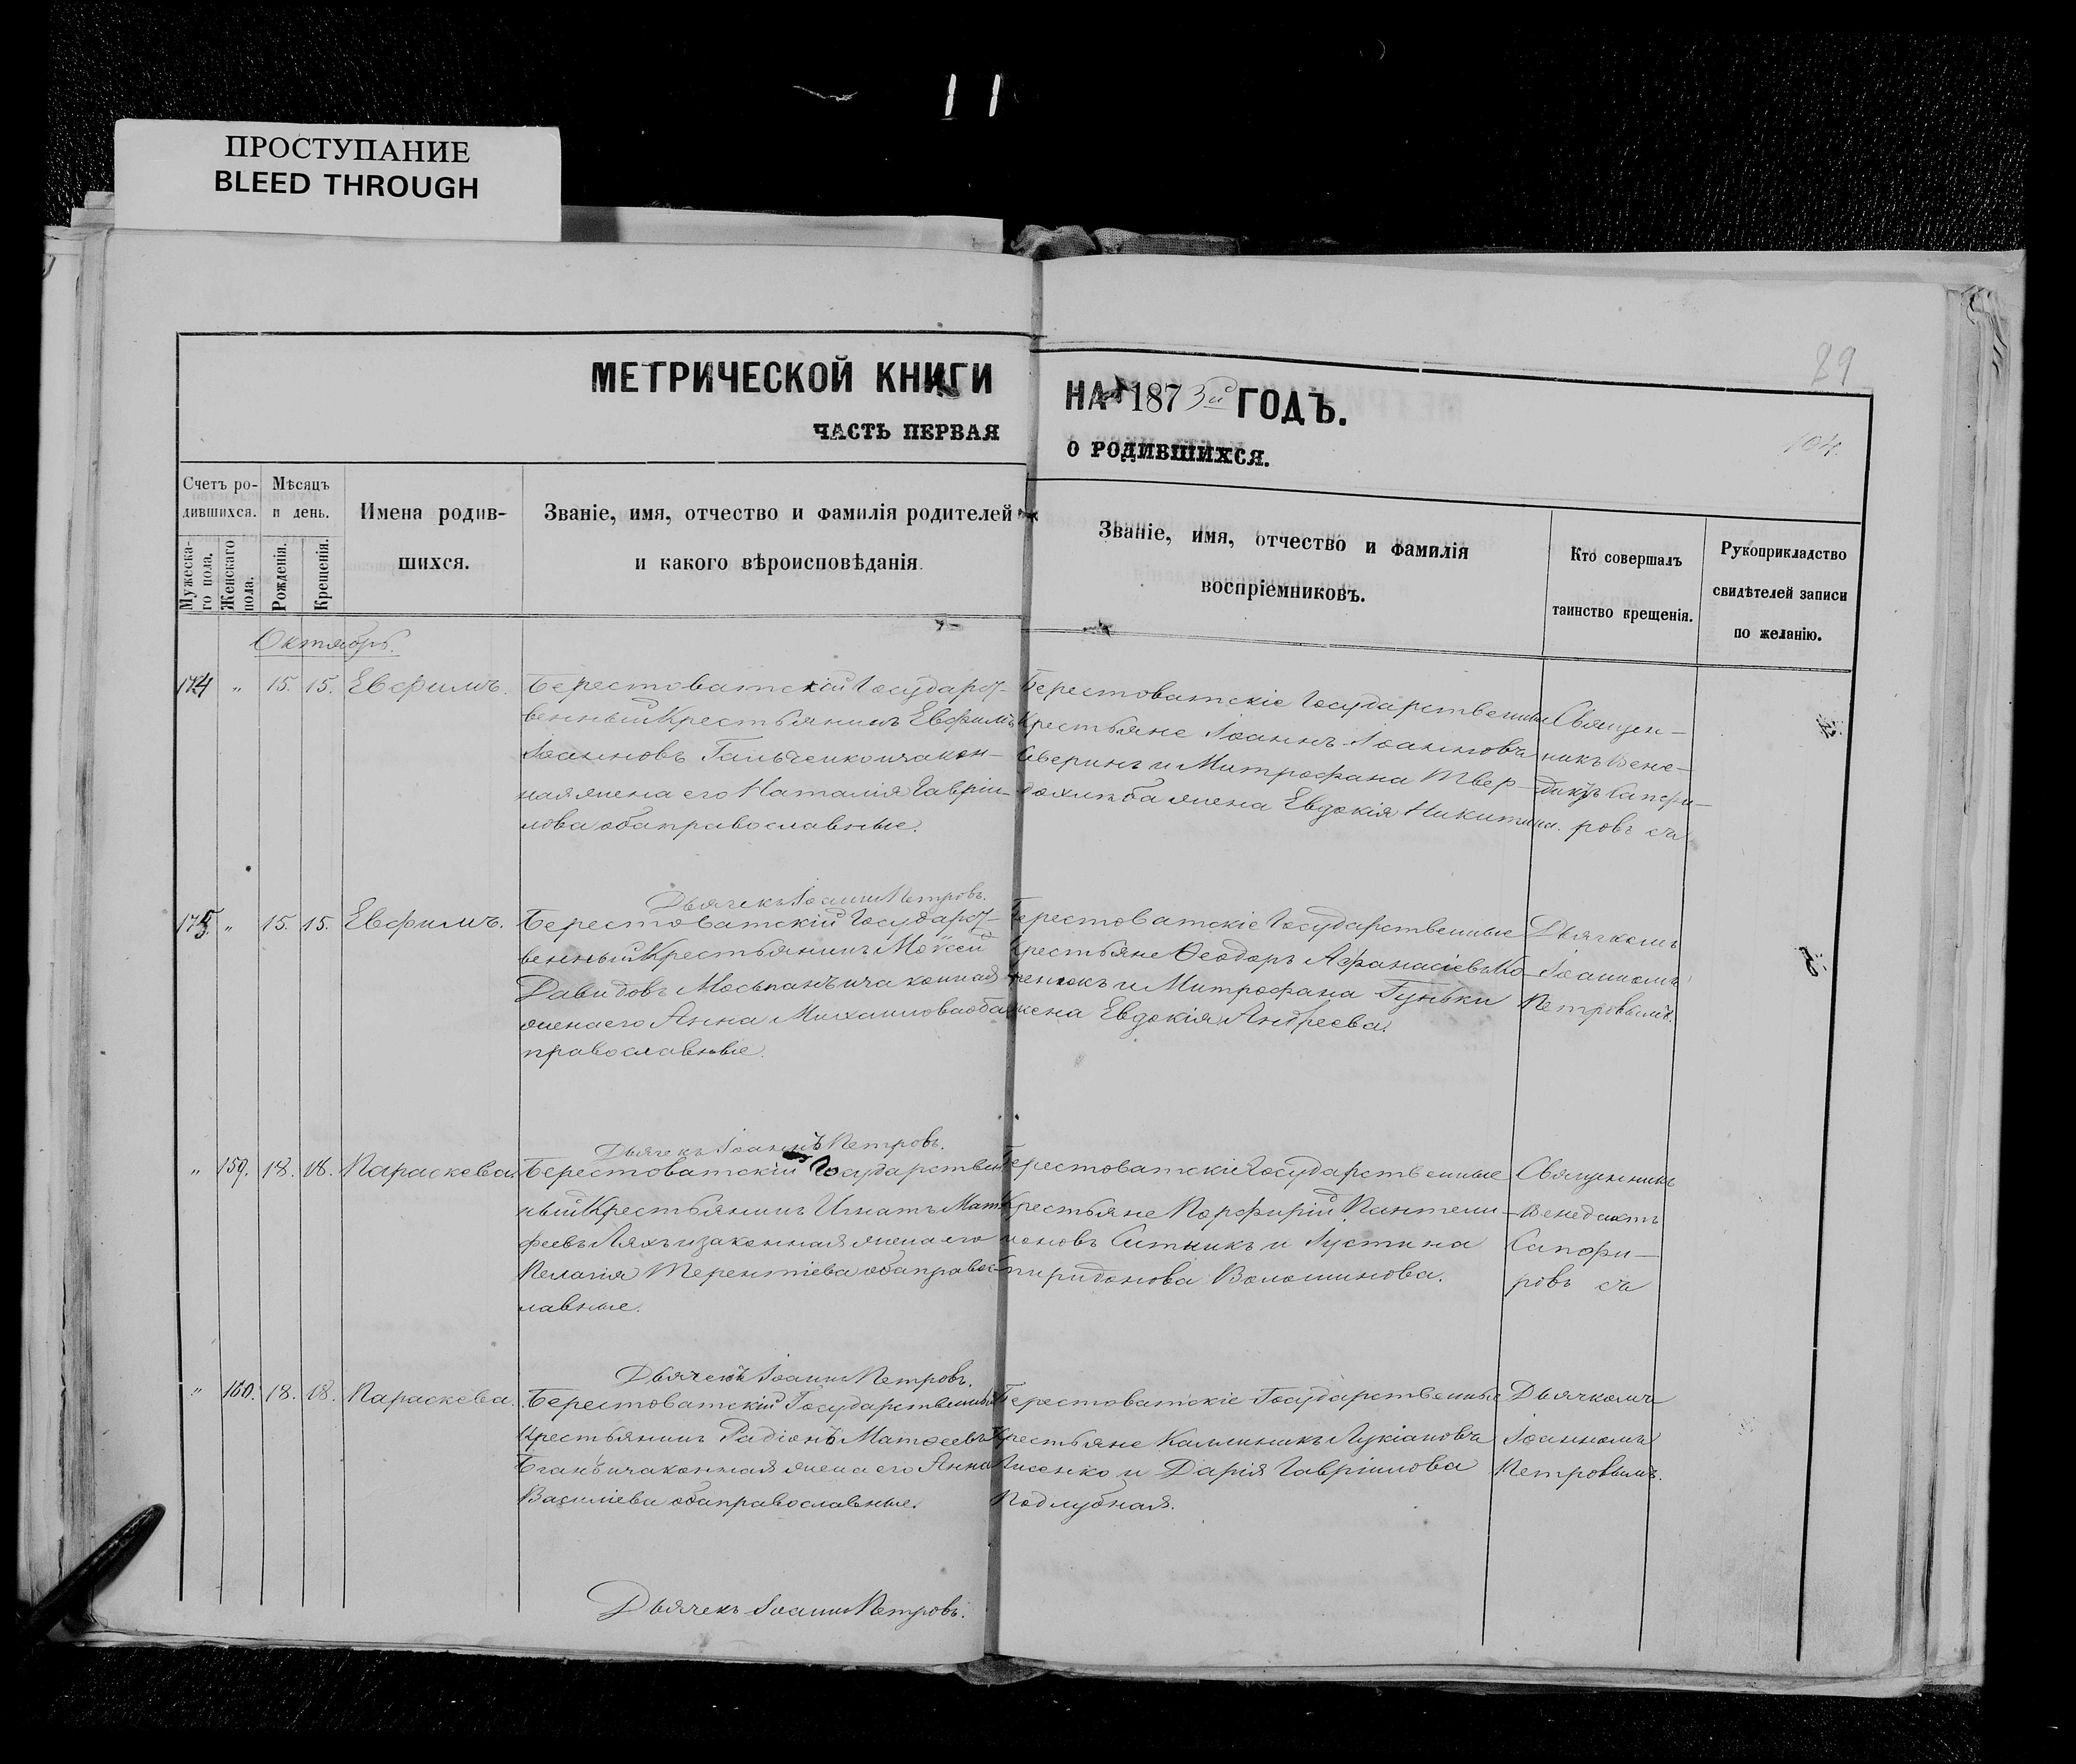 11
ПРОСТУПАНИЕ
BLEED THROUGH
89
МЕТРИЧЕСКОЙ КНИГИ НА 1873й ГОДЪ.
ЧАСТЬ ПЕРВАЯ О РОДИВШИХСЯ.
104.
Счетъ родившихся.
Мужескаго пола.
Женскаго пола.
Мѣсяцъ и день.
Рожденія.
Крещенія.
Имена родив-
шихся.
Званіе, имя, отчество и фамилія родителей
и какого вѣроисповѣданія.
Званіе, имя, отчество и фамилія
воспріемниковъ.
Кто совершалъ
таинство крещенія.
Рукоприкладство
свидѣтелей записи
по желанію.
Октябрь.
174 " 15. 15. Евфимъ.
Берестоватскій Государст-
венный Крестьянинъ Евфимъ
Іоанновъ и закон-
ная жена его Наталія Гаврiи-
лова оба православные.
Берестоватскіе Государственные
Крестьяне Іоаннъ Іоанновъ
Аверинъ и Митрофана Твер-
дохлѣба жена Евдокія Никитина.
Священ-
никъ Вене-
диктъ Сапфи-
ровъ съ
Дьячекъ Іоаннъ Петровъ.
175. " 15. 15. Евфимъ.
Берестоватскій Государст-
венный Крестьянинъ Моѵсей
Давидовъ и законная
жена его Анна Михаилова оба
православные.
Берестоватскіе Государственные
Крестьяне Ѳеодоръ Афанасіевъ Ко-
и Митрофана Гуньки
жена Евдокія Андреева.
Дьячкомъ
Іоанномъ
Петровымъ.
Дьячекъ Іоаннъ Петровъ.
" 159. 18. 18. Параскева.
Берестоватскій Государствен-
ный Крестьянинъ Игнатъ Мат-
феевъ Ляхъ и законная жена его
Пелагія Терентіева оба правос-
лавные.
Берестоватскіе Государственные
Крестьяне Порфирій Пантели-
моновъ Ситникъ и Іустина
Спиридонова Волошинова.
Священникъ
Венедиктъ
Сапфи-
ровъ съ
Дьячекъ Іоаннъ Петровъ.
" 160. 18. 18. Параскева.
Берестоватскій Государственный
Крестьянинъ Радіонъ Матѳеевъ
и законная жена его Анна
Василіева оба православные.
Берестоватскіе Государственные
Крестьяне Каллиникъ Лукіановъ
Лисенко и Дарія Гавріилова
Подлубная.
Дьячкомъ
Іоанномъ
Петровымъ.
Дьячекъ Іоаннъ Петровъ.